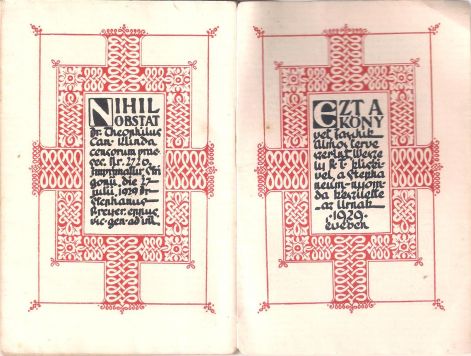 NIHIL
OBSTAT
dr. Theophilus
Can. Klinda
censorum prae
ses. Nr. 2720.
Imprimatur Stri
gonii, die 27
julii 1929 dr
Stephanus
Breyer. eppus
vic. gen. ad int.
EZT A
KÖNY
vet Jaschik
Álmos terve
szerint Wesze
ly k. i. kliséi
vel, a Stepha
neum-nyom
da készítette
az Úrnak
·1929·
évében